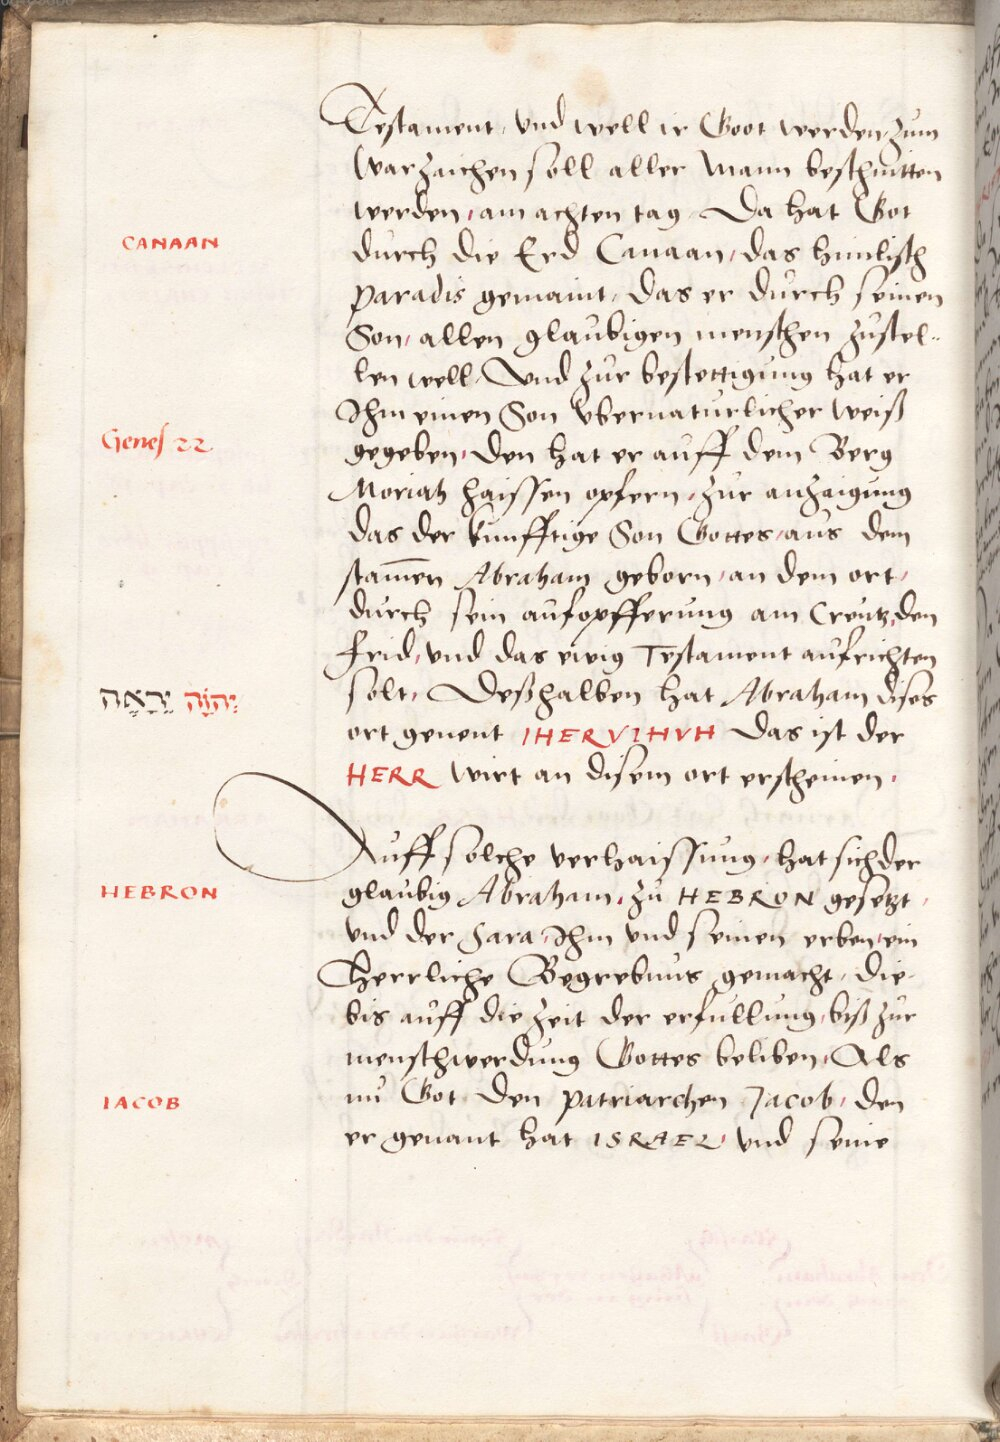 Testament, vnd well ir Gott werden, zum
Warzaichen soll aller Mann beschnitten
werden, am achten tag, Da hat Got
CANAAN
durch die Erd Canaan, das himlisch
Paradis gemaint, Das er durch seinen
Son, allen glaubigen menschen zustel-
len well, Vnd zur bestettigung hat er
Ihm einen Son vbernaturlicher weiß
Genes 22
gegeben, den hat er auff dem Berg
Moriah haissen opfern, zur anzaigung
das der kunfftige Son Gottes, aus dem
stam̄en Abraham geborn, an dem ort,
durch sein aufopfferung am Creutz, den
frid, vnd das ewig Testament aufrichten
יְהוָֹה יֵרָאֶה
solt, Deßhalben hat Abraham dises
ort genent IHERVIHVH Das ist der
HERR wirt an disem ort erscheinen,
Auff solche verhaissung, hat sich der
HEBRON
glaubig Abraham, zu HEBRON gesetzt,
vnd der Sara, Ihm vnd seinen erben, ein
Herrliche Begrebnus gemacht, die
bis auff die zeit der erfullung, biß zur
menschwerdung Gottes beliben, Als
IACOB
nu Got den Patriarchen Jacob, den
er genant hat ISRAEL, vnd seine